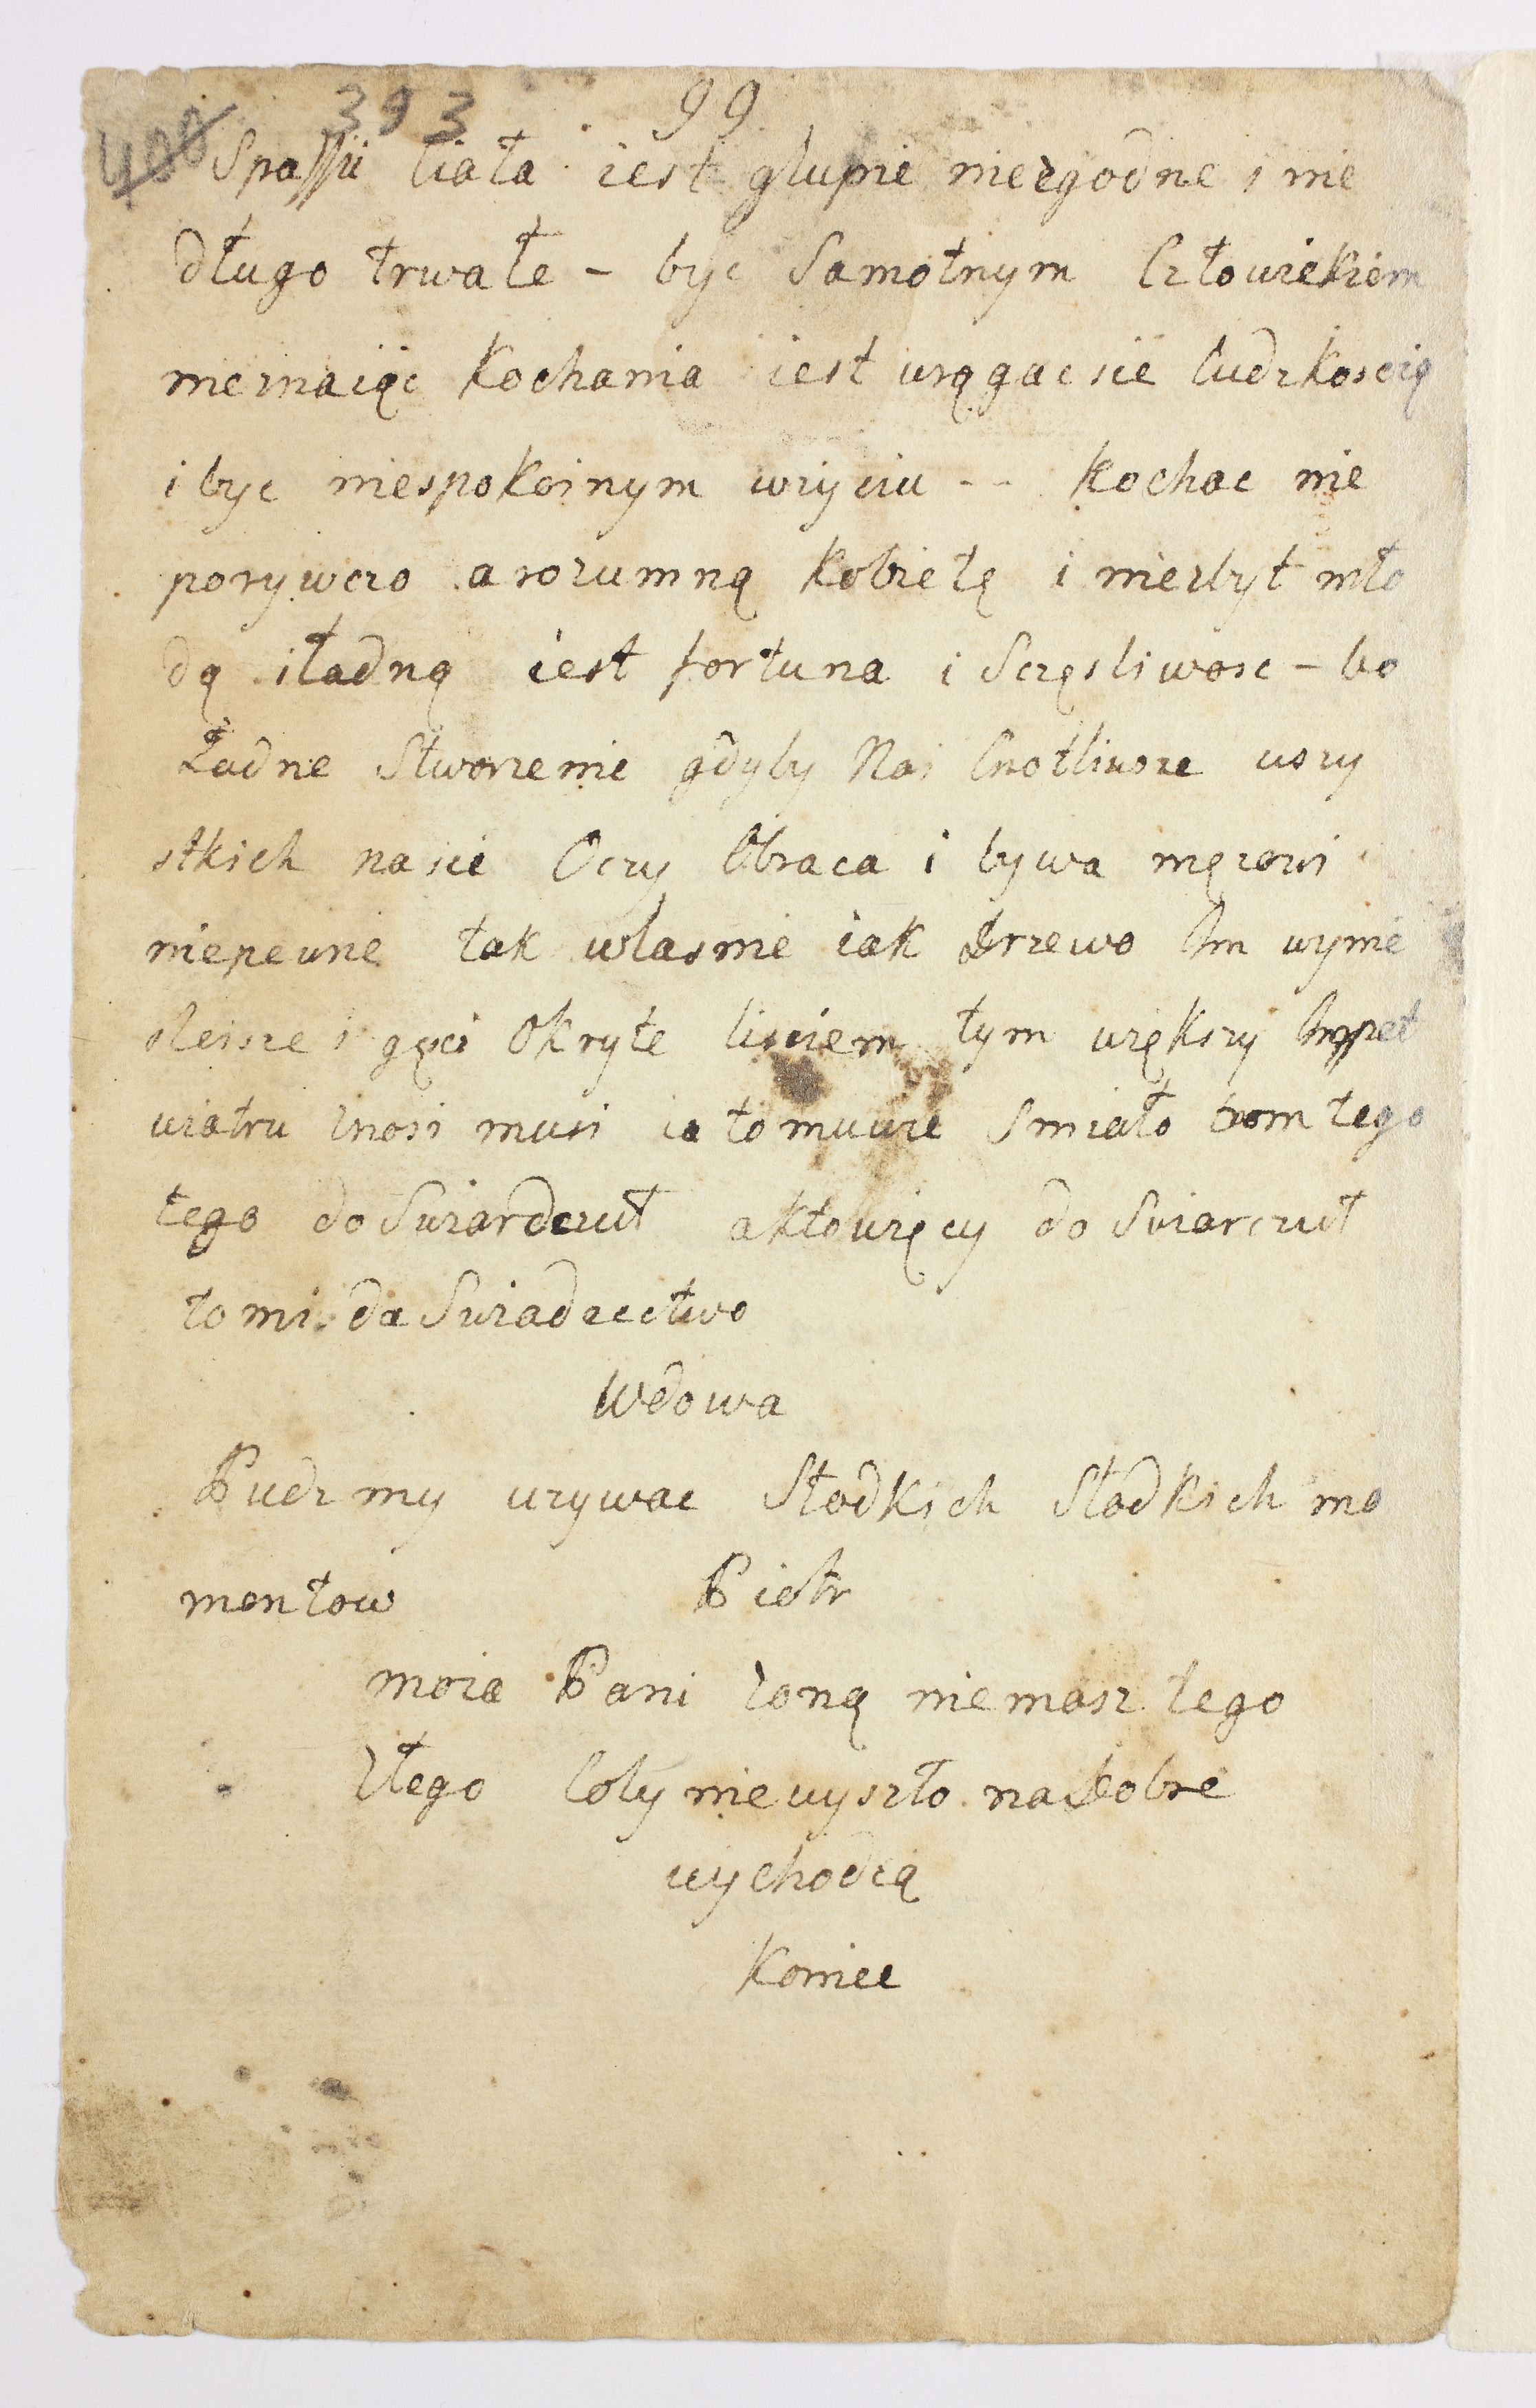 400 393 99
Spassii Ciała iest głupie niezgodne i nie
długo trwałe - byc Samotnym Człowiekiem
nieznaiąc kochania iest urągac sie ludzkoscią
i byc niespokoinym wżyciu -- kochac nie
porywczo arozumną kobietę i niezbyt mło
dą iładną iest fortuna i Sczęsliwosc - bo
Ładne Stworzenie gdyby Nai Cnotliwsze wszy
stkich nasie Oczy Obraca i bywa męzowi
niepewne tak własnie iak drzewo Im wynie
sleisze i gęsci Okryte lisciem tym większy Impet
wiatru znosi musi ia to muwie Smiało bom tego
tego do Swiardczuł aktowięcy do Swiarczuł
to mi da Swiadectwo
Wdowa
Pudzmy uzywac Słodkich Słodkich mo
mentow Piotr
moia Pani zoną niemasz tego
Złego Coby niewyszło nadobre
wychodzą
Koniec